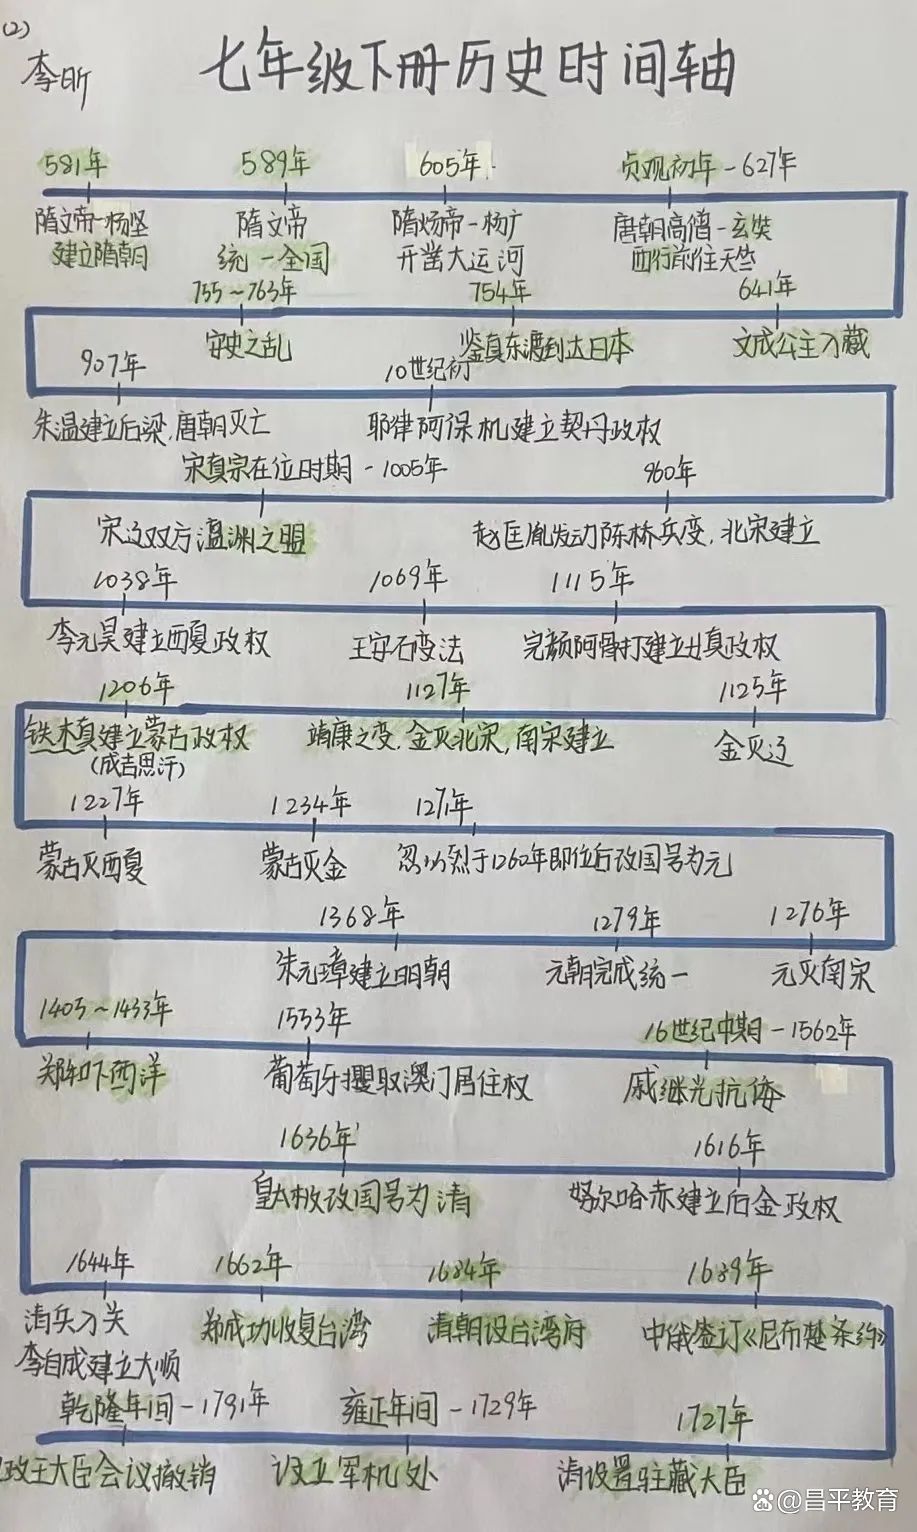 (2)
李昕
七年级下册历史时间轴
581年 589年 605年 贞观初年-627年
隋文帝-杨坚 隋文帝 隋炀帝-杨广 唐朝高僧-玄奘
建立隋朝 统一全国 开凿大运河 西行前往天竺
755~763年 754年 641年
安史之乱 鉴真东渡到达日本 文成公主入藏
907年 10世纪初
朱温建立后梁,唐朝灭亡 耶律阿保机建立契丹政权
宋真宗在位时期-1005年 960年
宋辽双方澶渊之盟 赵匡胤发动陈桥兵变,北宋建立
1038年 1069年 1115年
李元昊建立西夏政权 王安石变法 完颜阿骨打建立女真政权
1206年 1127年 1125年
铁木真建立蒙古政权 靖康之变,金灭北宋,南宋建立 金灭辽
(成吉思汗)
1227年 1234年 1271年
蒙古灭西夏 蒙古灭金 忽必烈于1260年即位后改国号为元
1368年 1279年 1276年
朱元璋建立明朝 元朝完成统一 元灭南宋
1405~1433年 1553年 16世纪中期-1562年
郑和下西洋 葡萄牙攫取澳门居住权 戚继光抗倭
1636年 1616年
皇太极改国号为清 努尔哈赤建立后金政权
1644年 1662年 1684年 1689年
清兵入关 郑成功收复台湾 清朝设台湾府 中俄签订《尼布楚条约》
李自成建立大顺
乾隆年间-1791年 雍正年间-1729年 1727年
政王大臣会议撤销 设立军机处 清设置驻藏大臣
@昌平教育